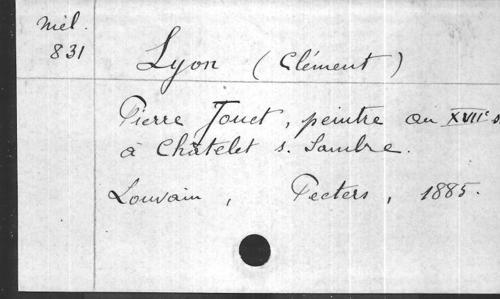 Mél.
831
Lyon (Clément)
Pierre Jouet, peintre au XVIIe s.
à Châtelet s. Sambre.
Louvain, Peeters, 1885.